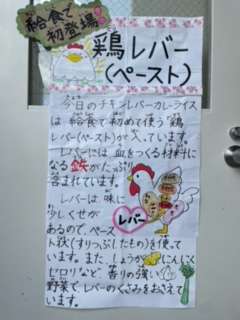 給食で
初登場!
鶏レバー
(ペースト)
今日のチキンレバーカレーライス
は給食で初めて使う「鶏
レバー(ペースト)」が入っています。
レバーには血をつくる材料に
なる鉄がたっぷり
含まれています。
レバーは味に
少しくせが
あるので、ペース
ト状(すりつぶしたもの)を使って
います。また、しょうが、にんにく
セロリなど、香りの強い
野菜でレバーのくさみをおさえて
います。
レバー